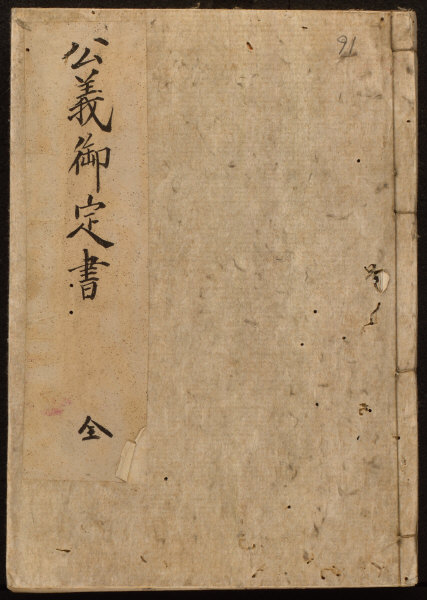 公義御定書
全
91